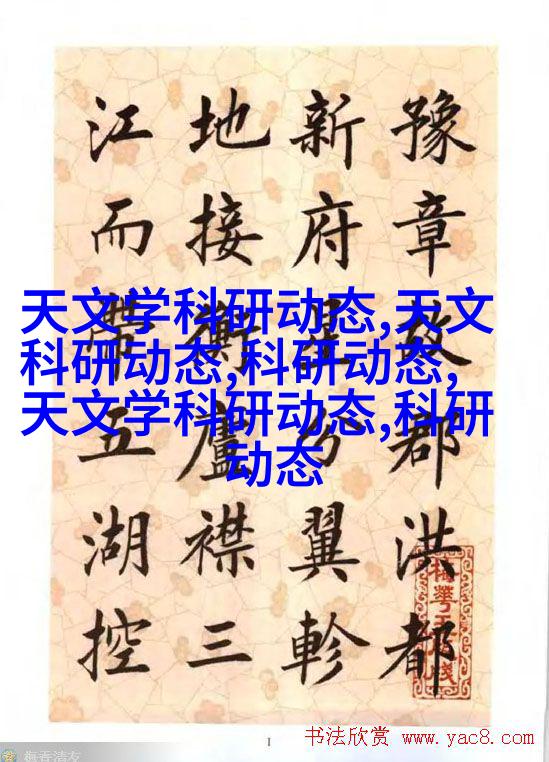 豫章故郡洪都
新府星分翼軫
地接衡廬襟三
江而帶五湖控
天文学科研动态,天文
科研动态,科研动态,
天文学科研动态,科研
动态
I
书法欣赏 www.yac8.com